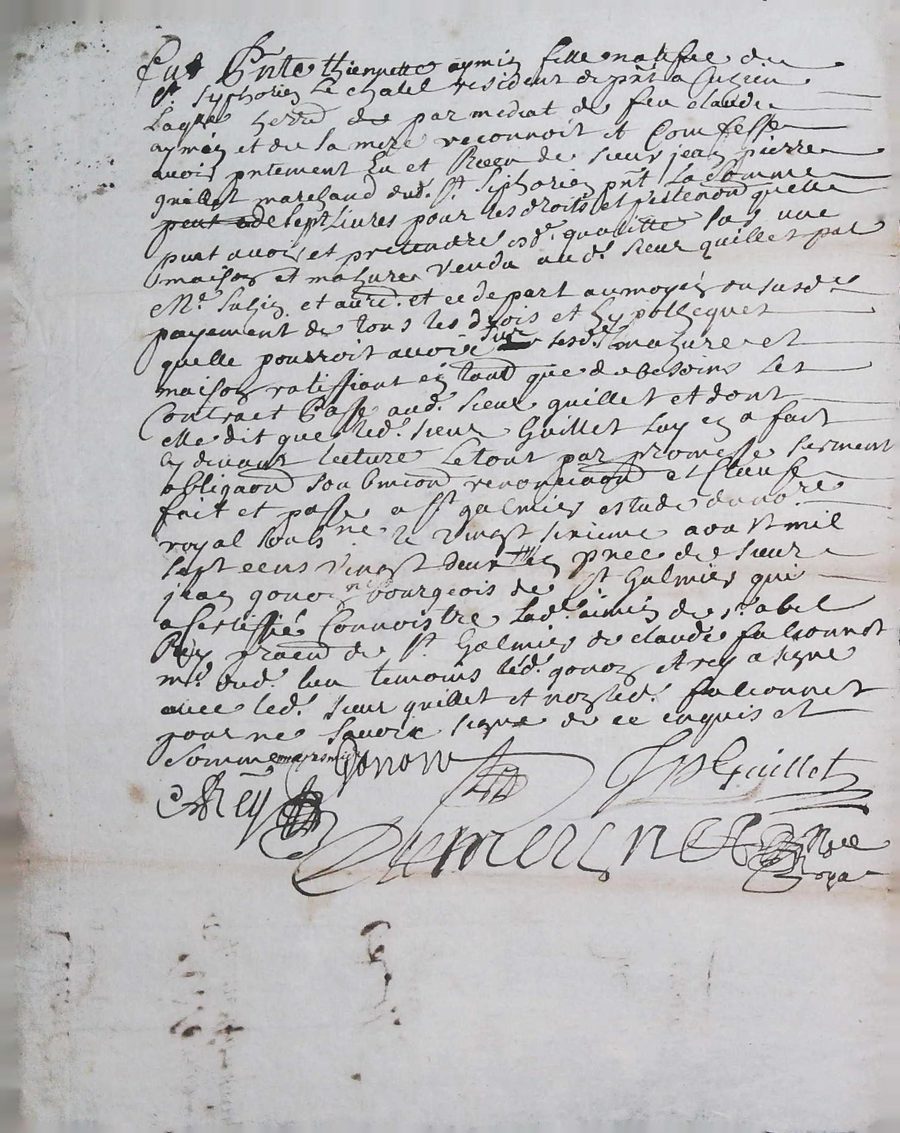 Fut pnte thiennette aymin fille natifue de
St. Syphorien Le chatel resident de pnt a Cuzieu
Laqlle herre de par mediat de feu claude
aymin et de sa mere reconnoit et Comfesse
avoir pntement Eu et Receu de sieur jean pierre
guillet marchand dud. St. Siphorien pnt La somme
de Sept Livres pour les droits et pretenon quelle
put avoir et pretendre esd. quallitte sur une
maison et mazure vendu aud. sieur quillet par
Mr. et aure. et ce depart au moyen du susd
payement de tous les drois et hypotheques
quelle pourroit avoir sur lesd. mazure et
maison ratiffiant en tant que de besoins Le
Contract Passe aud. sieur quillet et dont
elle dit que led. sieur Guillet Luy en a fait
cy devant lecture Le tout par promesse serment
obligaon soubmion renonciaon et Clause
fait et passe a St galmier estude du nore
royal soubsne le vingt sixieme aoust mil
sept cens vingt deux en pnce de sieur
jean gonon bourgeois de St Galmier qui
a Certiffié Connoistre Lad. aimin de sr. abel
Rey praen de St. Galmier de claude falconnet
md. dud. lieu temoins led. gonon et rey a signe
avec led. sieur quillet et non led. falconnet
pour ne savoir signe de ce enquis et
Somme
Gonon
JpGuillet
Rey
Nore
Royal